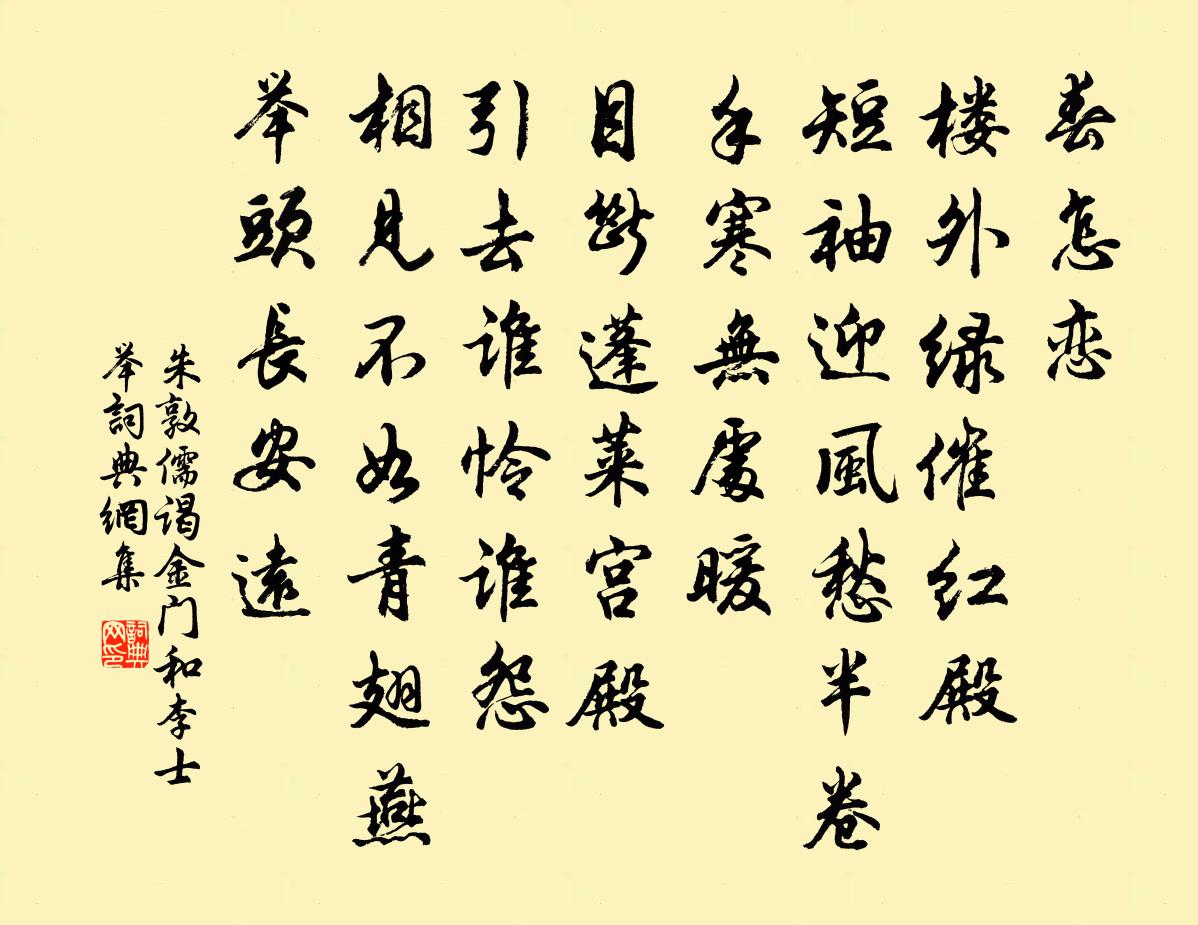 春怎恋
楼外绿催红殿
短袖迎風愁半卷
手寒無處暖
目斷蓬萊宫殿
引去谁怜谁怨
相見不如青翅燕
举頭長安遠
朱敦儒谒金门和李士
举詞典網集
詞典
网印